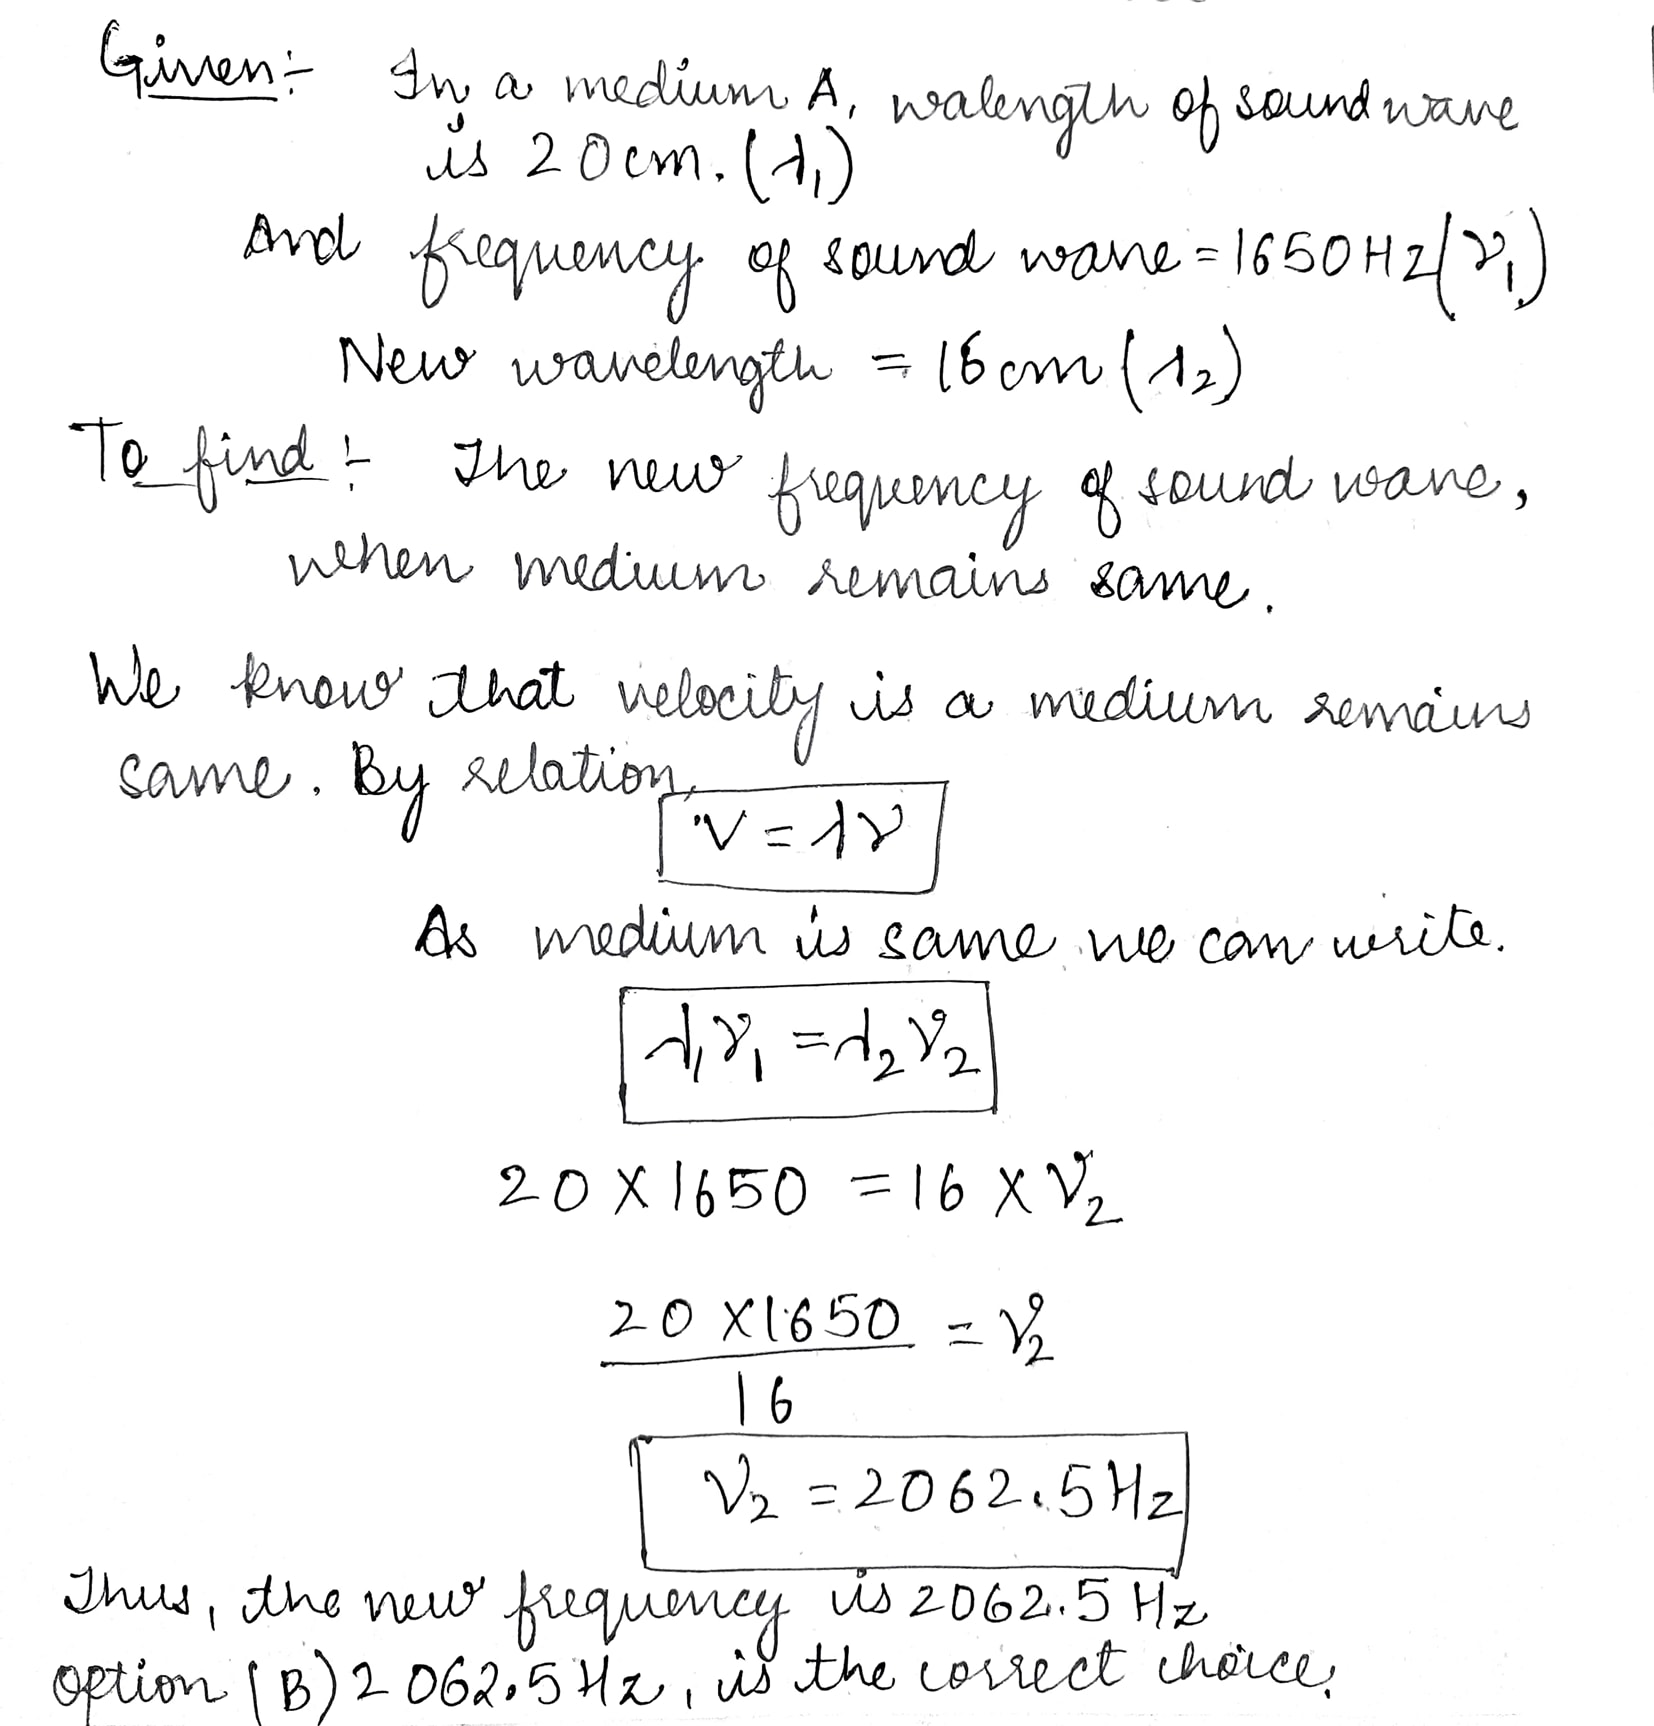 Given:- In a medium A, walength of sound wave
is 20cm. (λ₁)
And frequency of sound wave = 1650Hz (ν₁)
New wavelength = 16cm (λ₂)
To find:- The new frequency of sound wave,
when medium remains same.
We know that velocity is a medium remains
same. By relation,
V = λν
As medium is same we can write.
λ₁ν₁ = λ₂ν₂
20 X 1650 = 16 X ν₂
20 X 1650 = ν₂
16
ν₂ = 2062.5Hz
Thus, the new frequency is 2062.5 Hz
option (B) 2062.5Hz, is the correct choice.